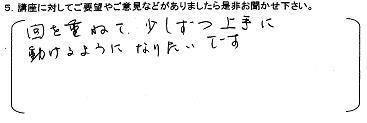 5. 講座に対してご要望やご意見などがありましたら是非お聞かせ下さい。
回を重ねて、少しずつ上手に
動けるように なりたいです